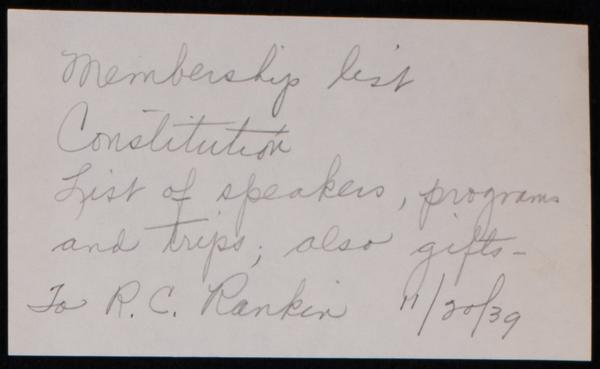 Membership list
Constitution
List of speakers, programs
and trips; also gifts-
To R. C. Rankin 11/20/39